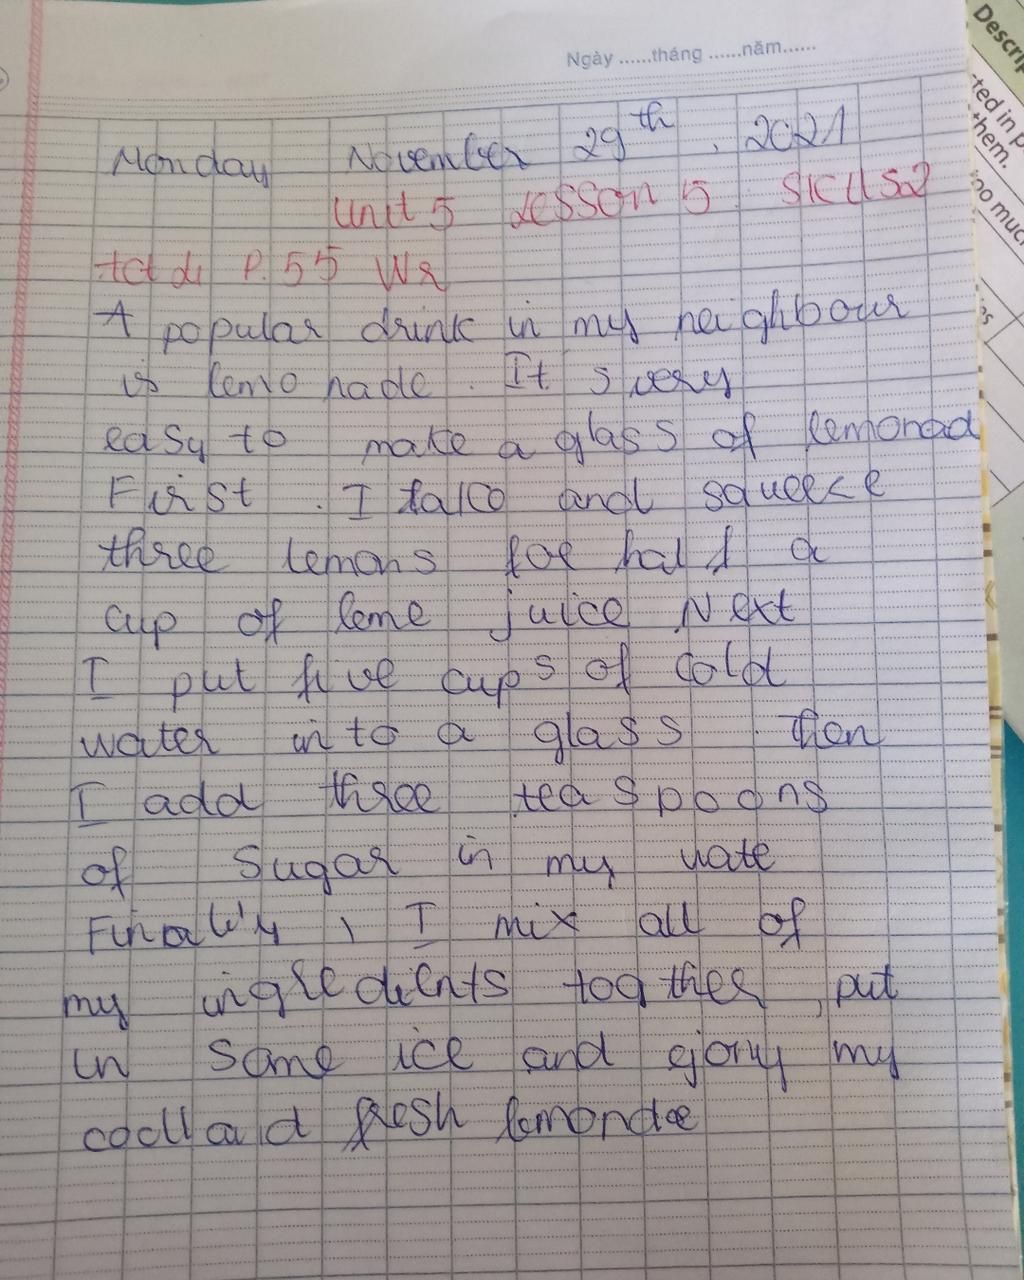 Ngày ......tháng ......năm......
Monday November 29th, 2021
Unit 5 Lesson 5 Skills2
P. 55 
A popular drink in my neighbour
is lemo nade. It s very
easy to make a glass of lemonad
First. I take and squeeze
three lemons for half a
cup of leme juice Next
I put five cups of cold
water into a glass. then
I add three teaspoons
of sugar in my vate
Finally, I mix all of
my ingredients together, put
in some ice and ejony my
cooll ad fresh lemondee
Descrip
ted in p
them.
oo much